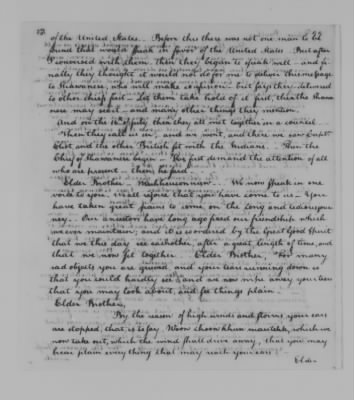 22
of the United States. Before this there was not one man to be
found that would speak in favor of the United States. But after
I conversed with them. then they began to speak well — and fi-
nally they thought it would not do for me to deliver this message
to Shawanese, who will make confusion — but says they delivered
to other chiefs first. Let them take hold of it first, then the Shawa-
nese may see it — and many other things they mention.
And on the 16th of July then they all met together in a council.
When they call us in, and we went, and there we saw Capt.
Eliot and the other British sit with the Indians. Then the
Chief of Shawanese began — He first demand the attention of all
who are present — then he said.
Elder Brother. We now speak in one
void to you. We rejoice that you have come to us. You
have taken great pains to come, on the long and tedious jour-
ney. Our ancestors have long ago fixed our friendship which
we ever maintain; and it is so ordered by the Great Good Spirit
that we this day see each other, after a great length of time, and
that we now set together. Elder Brother, For many
sad objects you are grieved and your tears running down so
that you could hardly see: and we now wipe away your tears
that you may look about, and see things plain.
Elder Brother,
By the reason of high winds and storms your ears
are stopped, that is to say. which we
now take out, which the wind shall drive away, that you may
hear plain everything that may reach your ears.
Elder